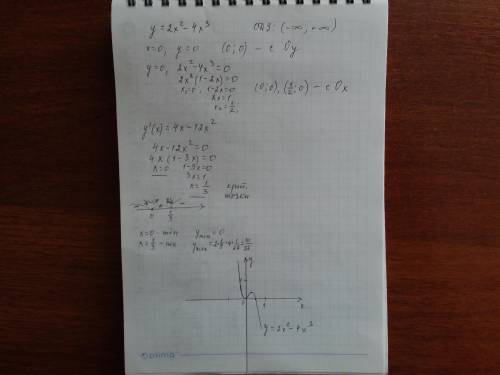 y = 2x² - 4x³ ОДЗ: (-∞, +∞)
x=0, y=0 (0; 0) - с Oy
y=0, 2x² - 4x³ = 0
2x² (1-2x) = 0
x₁=0, 1-2x=0
2x=1
x₂=1/2
(0; 0), (1/2; 0) - с Ox
y'(x) = 4x - 12x²
4x - 12x² = 0
4x (1-3x) = 0
x=0 1-3x=0
3x=1
x=1/3 крит. точки
0 1/3
x=0 - min y min = 0
x=1/3
y
0 1 x
y=2x²-4x³
prima